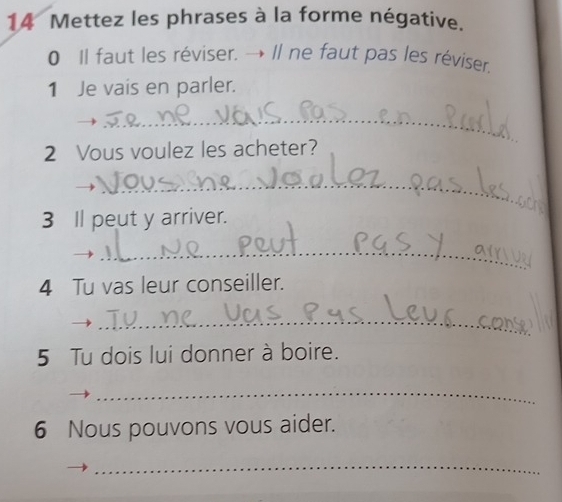 14 Mettez les phrases à la forme négative.
0 Il faut les réviser. → Il ne faut pas les réviser.
1 Je vais en parler.
→ Je ne vais pas en
2 Vous voulez les acheter?
→ Vous ne voulez pas les
3 Il peut y arriver.
→ Il ne peut pas y arriver
4 Tu vas leur conseiller.
→ Tu ne vas pas leur
5 Tu dois lui donner à boire.
→
6 Nous pouvons vous aider.
→